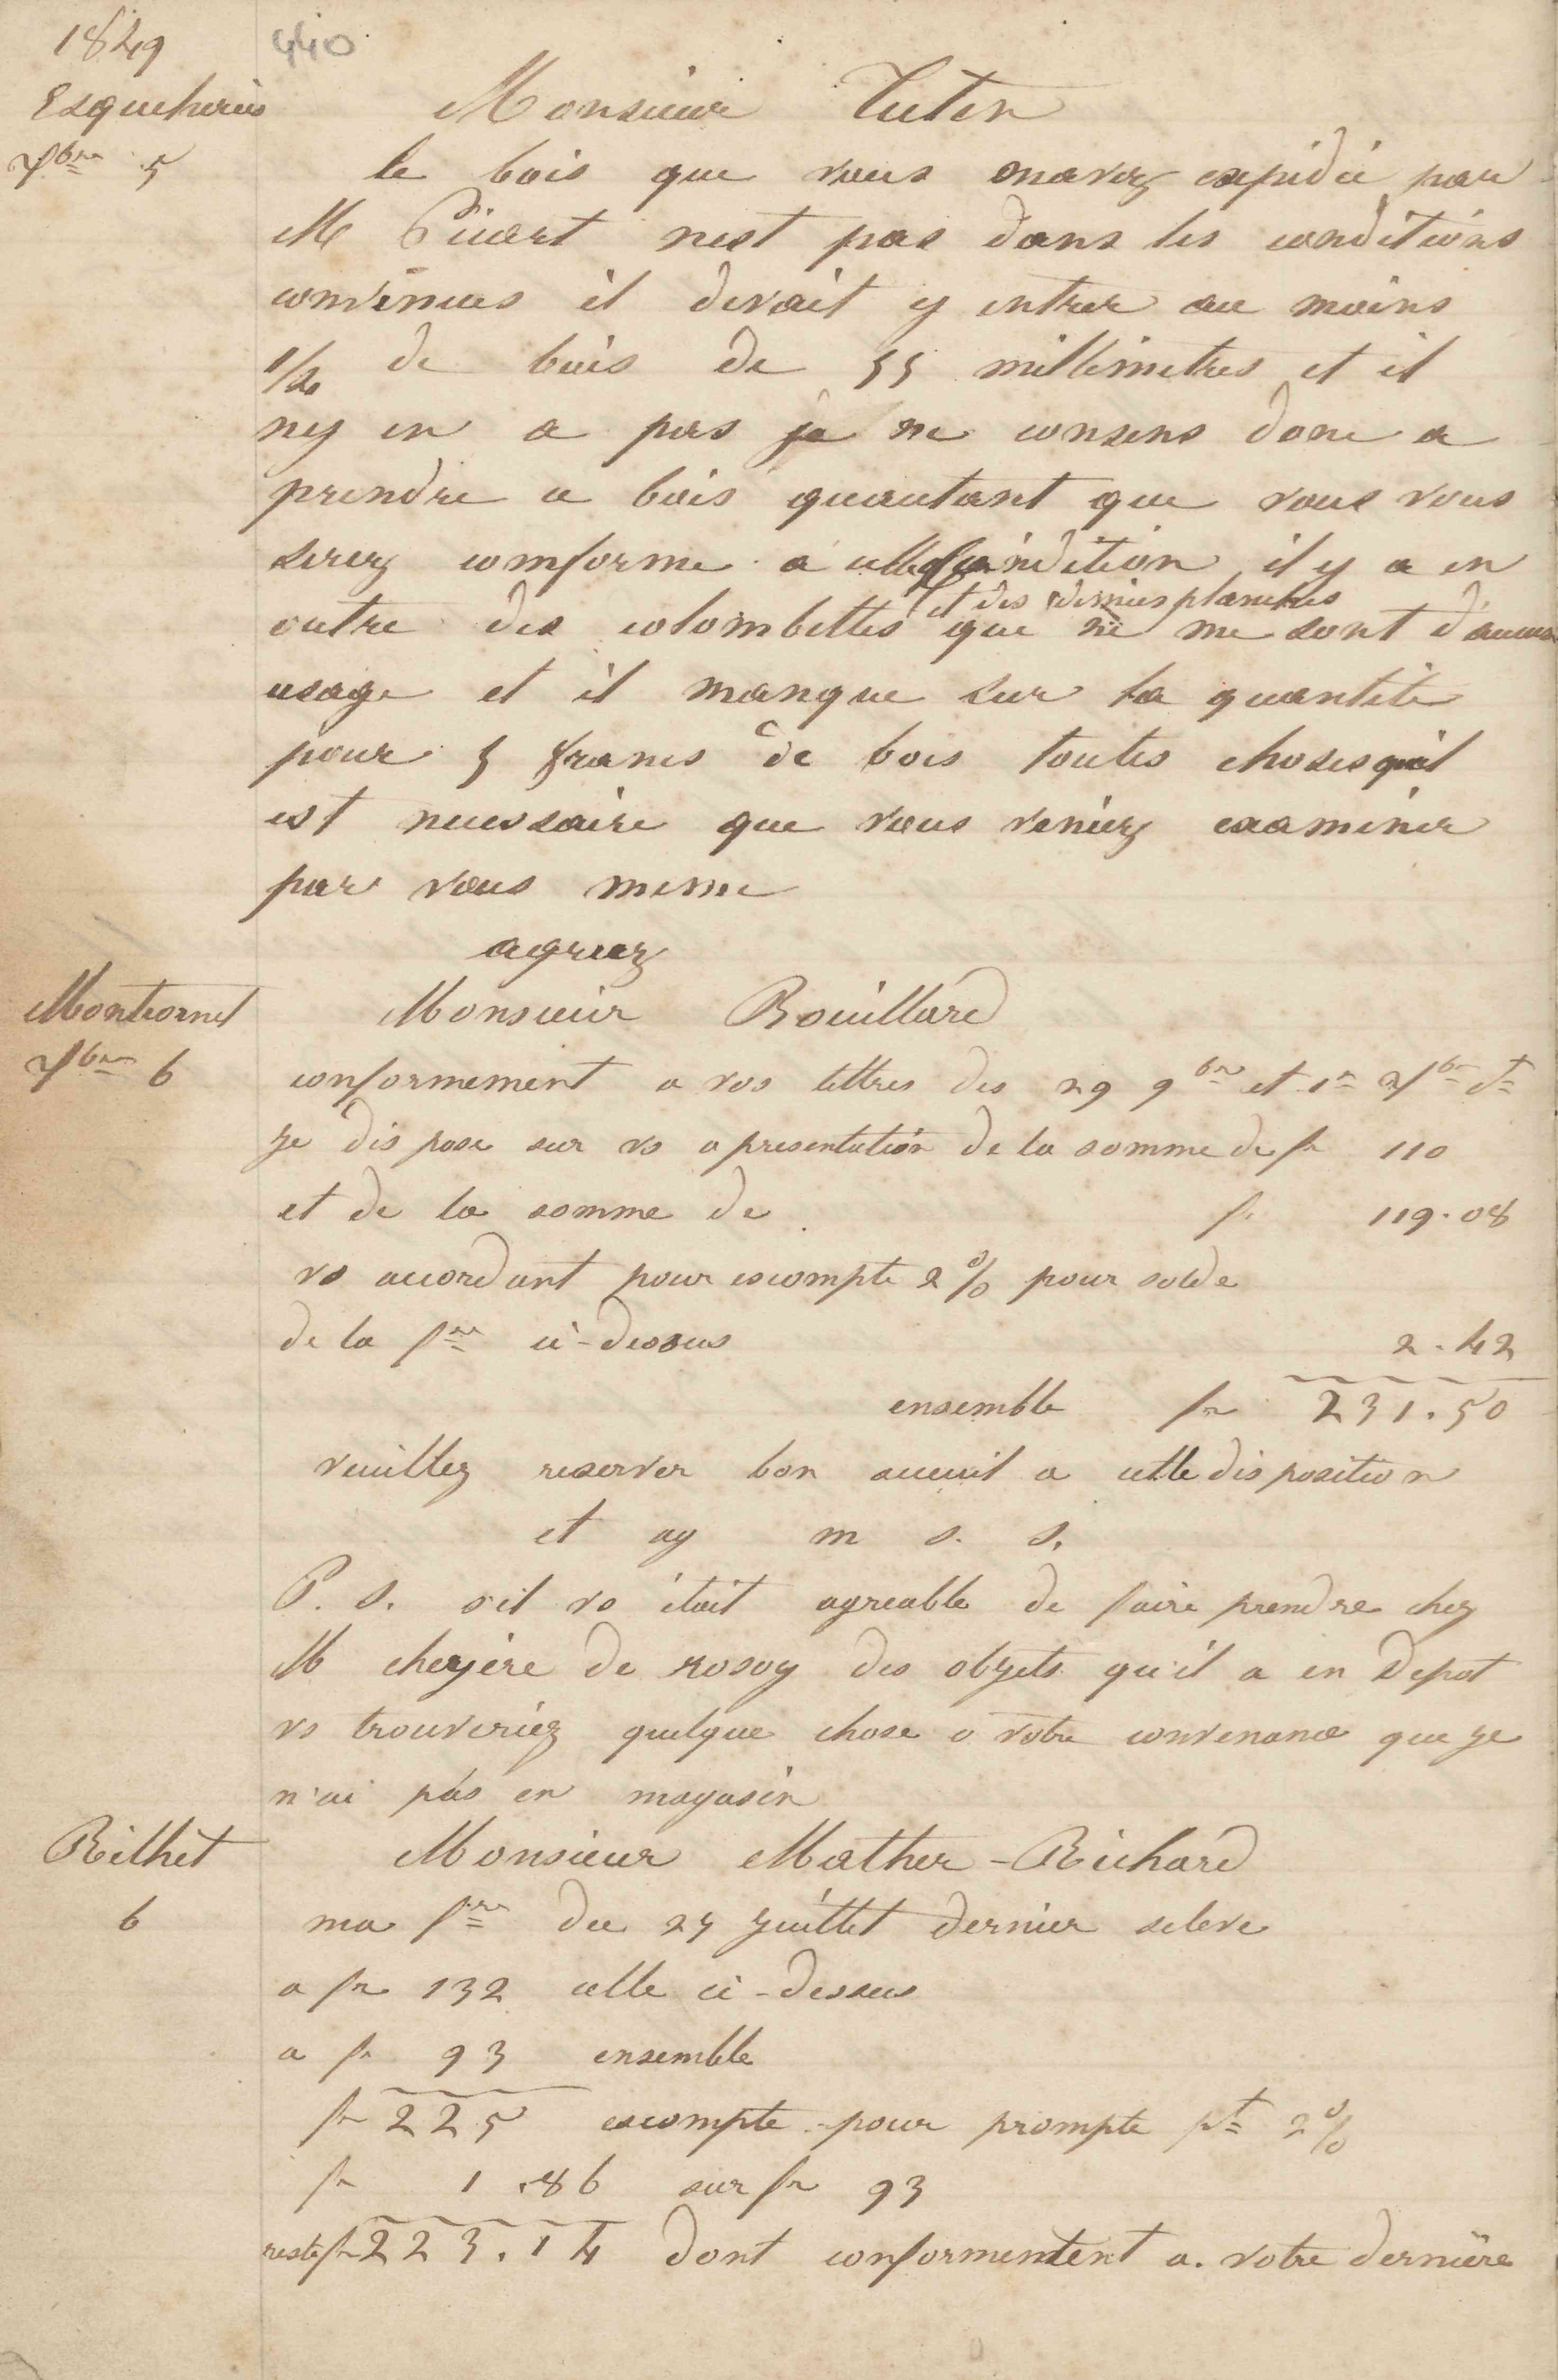 1849
440
Esqueheries
Xbre 5
Monsieur Tuten
le bois que vous mavez expédié par
M Picart nest pas dans les conditions
convenues il devait y entrer au moins
1/2 de bois de 55 millimetres et il
ny en a pas je ne consens donc a
prendre ce bois quautant que vous vous
serez comforme a cette condition il y a en
et des demies planches
outre des colombettes que ne me sont d'aucun
usage et il manque sur la quantité
pour 5 francs de bois toutes choses qu'il
est necessaire que vous veniez examiner
par vous meme
agreez
Montcornet
Xbre 6
Monsieur Rouillard
conformement a vos lettres des 29 9bre et 1er Xbre ct
je dispose sur vs a presentation de la somme de fr 110
et de la somme de fr 119.08
vs accordant pour escompte 2% pour solde
de la fre ci-dessus 2.42
ensemble fr 231.50
veuillez reserver bon accueil a cette disposition
et ag m s. s.
P. S. s'il vs était agreable de faire prendre chez
M cheyère de rosoy des objets qu'il a en depot
vs trouveriez quelque chose a votre convenance que je
n'ai pas en magasin
Rilhet
6
Monsieur Mather-Richard
ma fre du 25 juillet dernier seleve
a fr 132 celle ci-dessus
a fr 93 ensemble
fr 225 escompte pour prompte pt 2%
fr 1.86 sur fr 93
reste fr 223.14 dont conformentent a. votre dernière